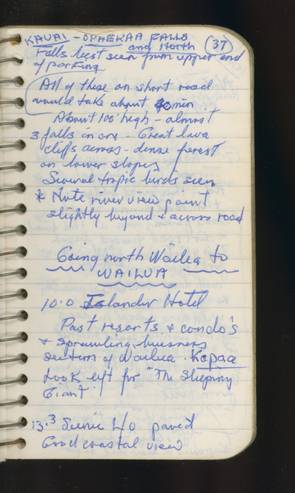 KAUAI - OPAEKAA FALLS
and North (37)
Falls best seen from upper end
of parking
All of these on short road
would take about 40 min
About 100' high - almost
3 falls in one - Great lava
cliffs across - dense forest
on lower slopes
Several tropic birds seen
* Note river view point
slightly beyond & across road
Going north Wailea to
WAILUA
10.0 Islander Hotel
Past resorts & condo's
& sprawling business
section of Wailua. Kapaa
Look left for "The Sleeping
Giant"
13.3 Scenic L/O paved
Good coastal view